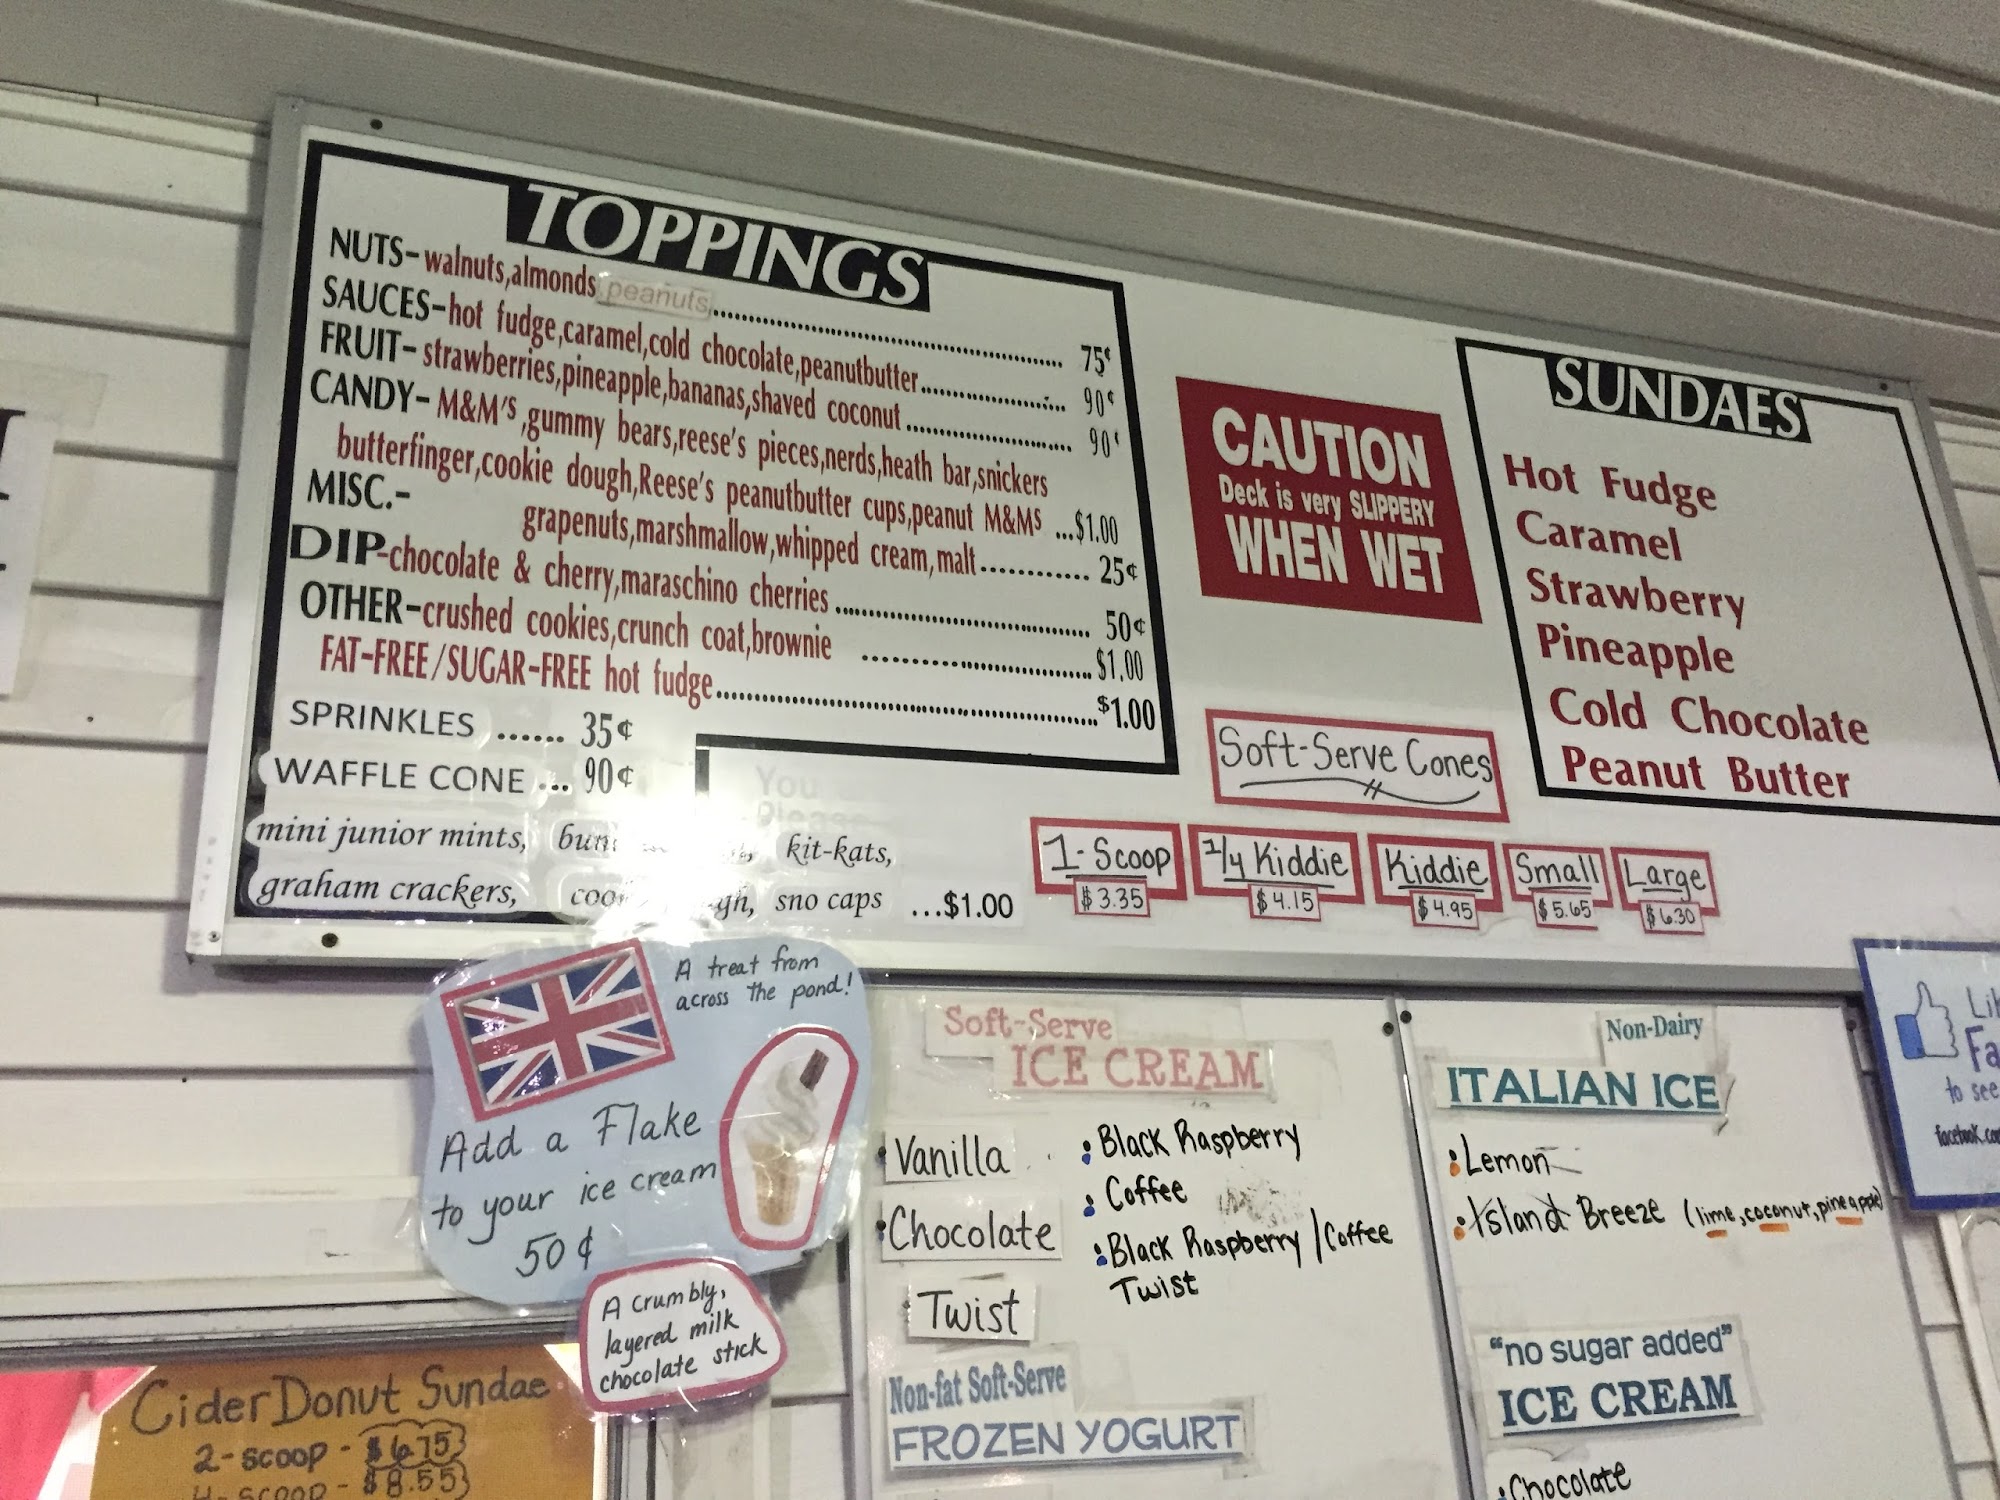 TOPPINGS
NUTS-walnuts,almonds,peanuts,.......... 75¢
SAUCES-hot fudge,caramel,cold chocolate,peanutbutter.......... 90¢
FRUIT-strawberries,pineapple,bananas,shaved coconut.......... 90¢
CANDY-M&M's,gummy bears,reese's pieces,nerds,heath bar,snickers
butterfinger,cookie dough,Reese's peanutbutter cups,peanut M&Ms ...$1.00
MISC.- grapenuts,marshmallow,whipped cream,malt............ 25¢
DIP-chocolate & cherry,maraschino cherries.......... 50¢
OTHER-crushed cookies,crunch coat,brownie ..........$1.00
FAT-FREE/SUGAR-FREE hot fudge..........$1.00
SPRINKLES ...... 35¢
WAFFLE CONE ... 90¢
mini junior mints, kit-kats,
graham crackers, sno caps ...$1.00
You
Please
CAUTION
Deck is very SLIPPERY
WHEN WET
SUNDAES
Hot Fudge
Caramel
Strawberry
Pineapple
Cold Chocolate
Peanut Butter
Soft-Serve Cones
1-Scoop
$3.35
1/4 Kiddie
$4.15
Kiddie
$4.95
Small
$5.65
Large
$6.30
A treat from
across the pond!
Add a Flake
to your ice cream
50¢
A crumbly,
layered milk
chocolate stick
Cider Donut Sundae
2-scoop - $6.75
4-scoop - $8.55
Soft-Serve
ICE CREAM
Vanilla
Chocolate
Twist
Black Raspberry
Coffee
Black Raspberry/Coffee
Twist
Non-fat Soft-Serve
FROZEN YOGURT
Non-Dairy
ITALIAN ICE
Lemon
Island Breeze (lime,coconut,pineapple)
"no sugar added"
ICE CREAM
Chocolate
to see